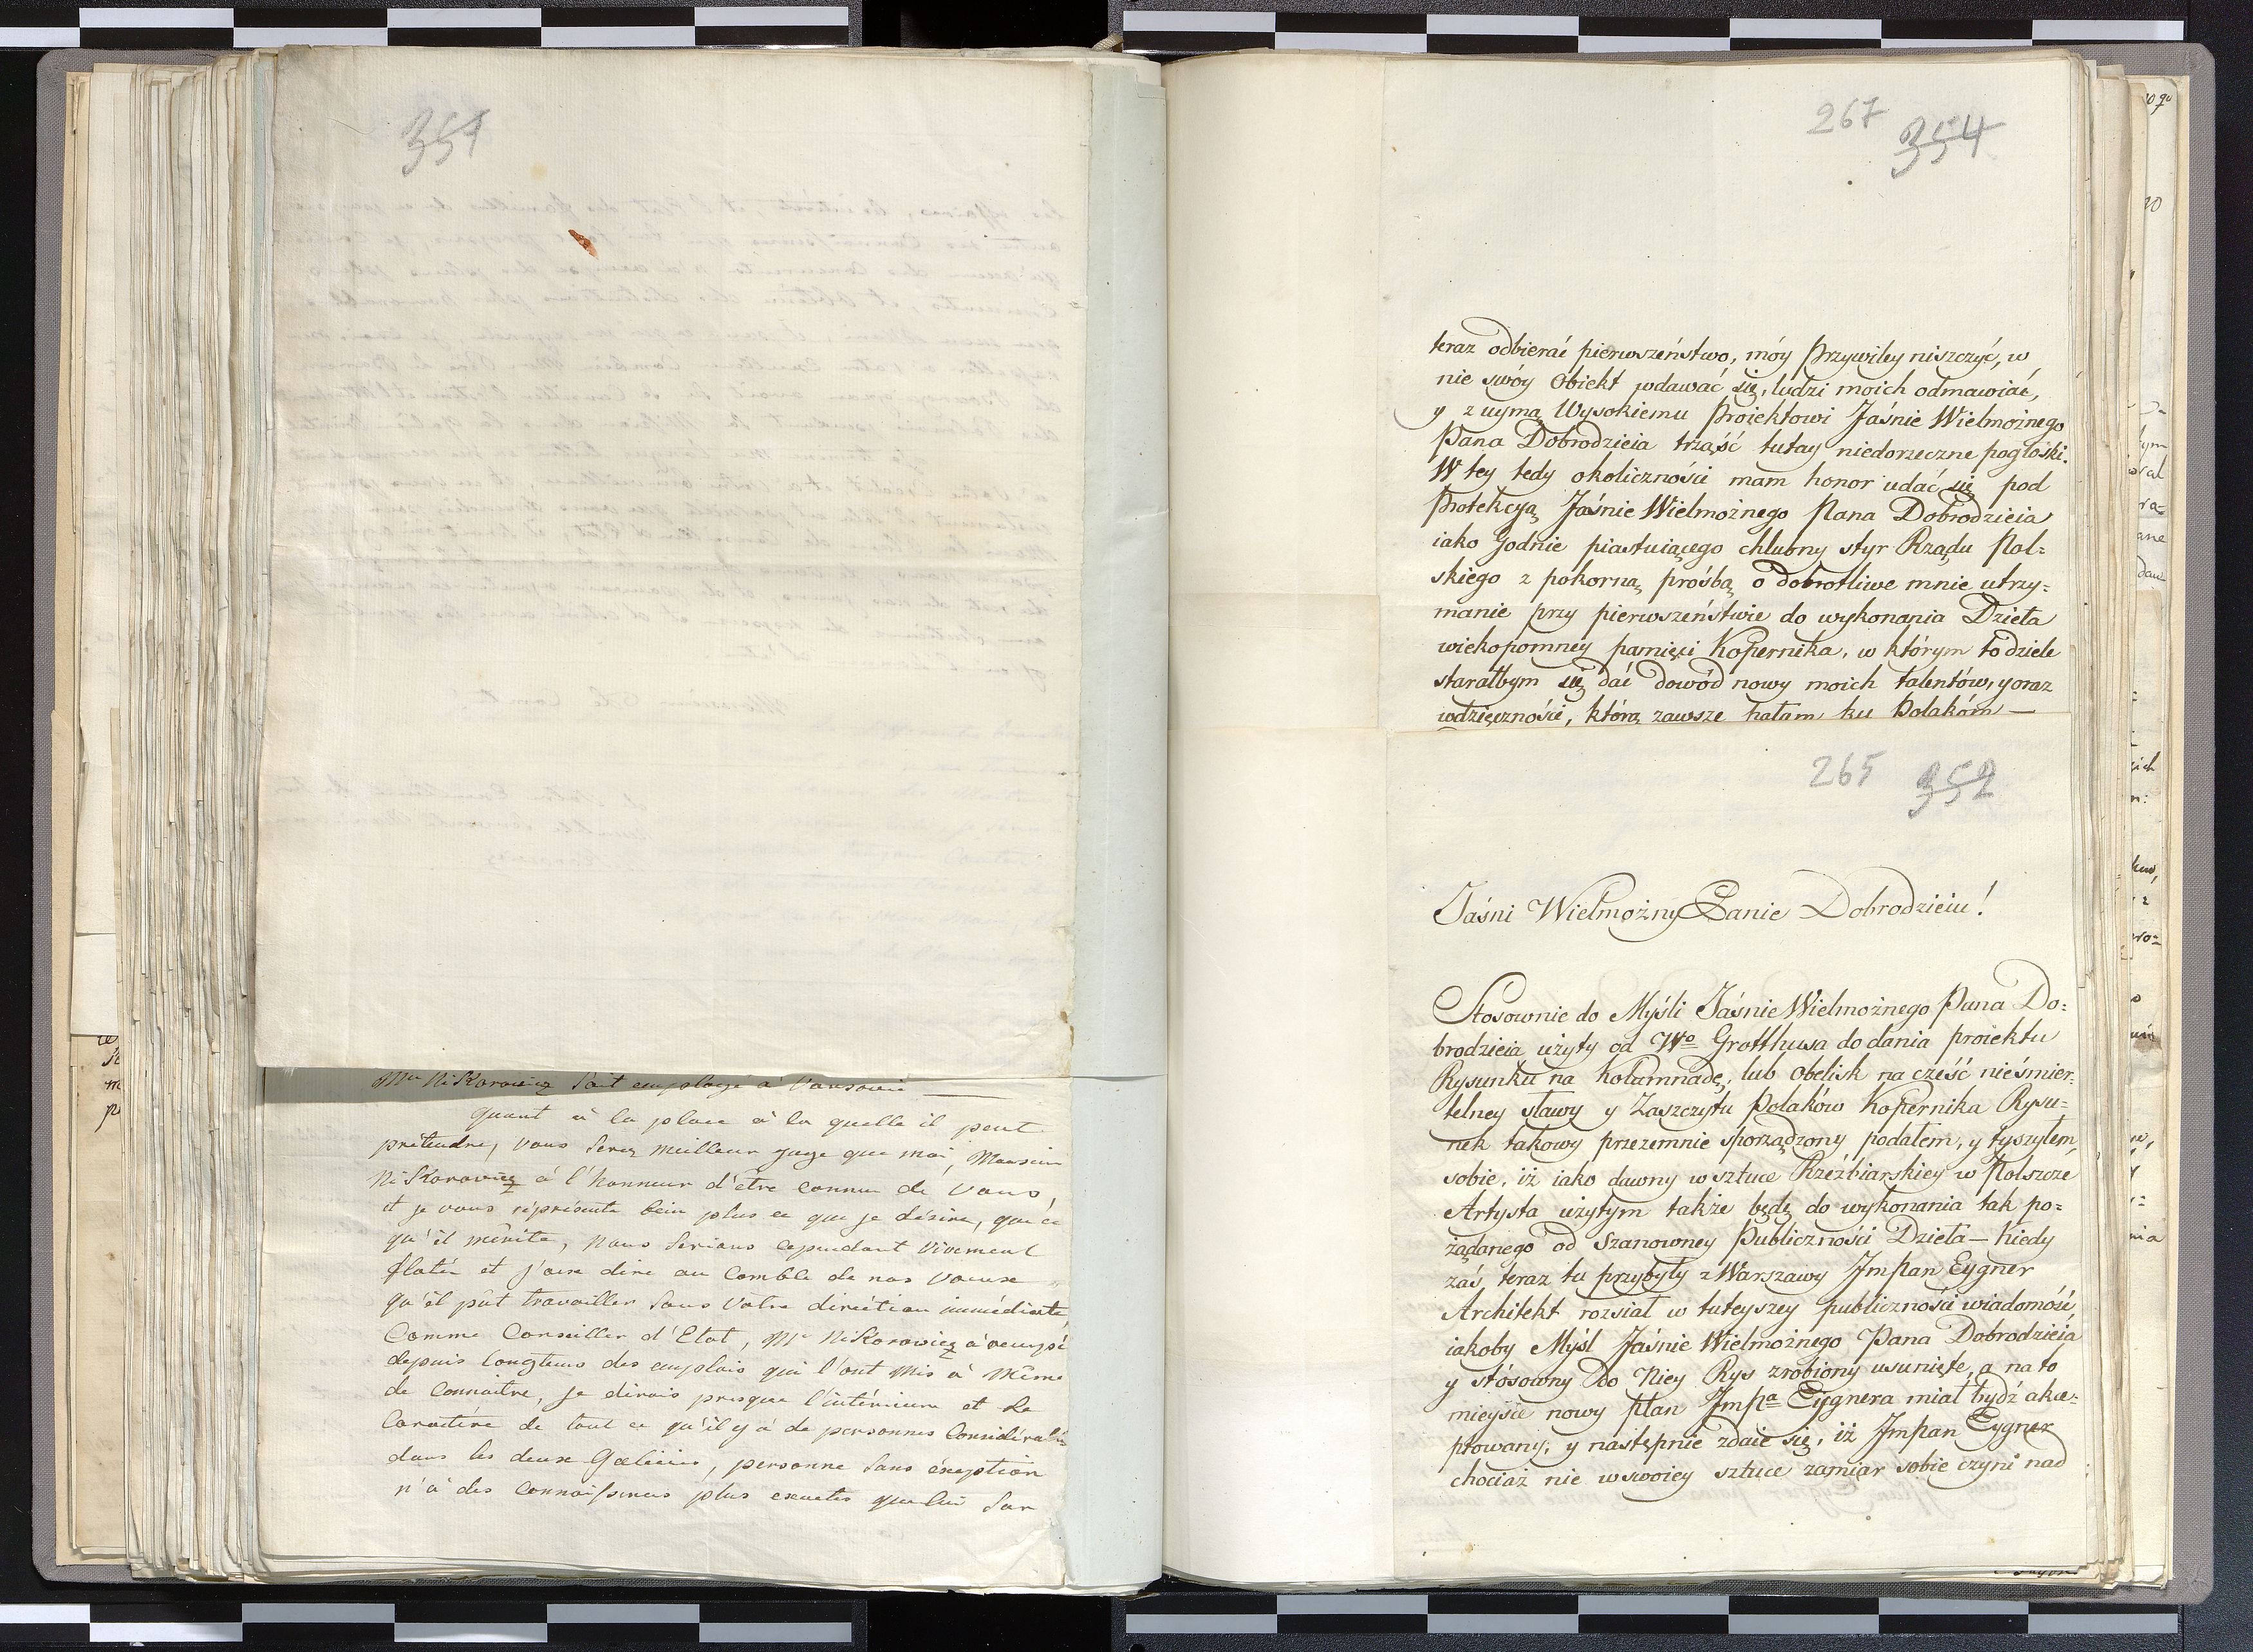 351
Mr Nikorowicz soit employé à Varsovie
quant à la place à la quelle il peut
prétendre, vous serez meilleur juge que moi, Monsieur
Nikorowicz à l'honneur d'être connu de vous,
et je vous réprésente bein plus ce que je désire, que ce
qu'il mérite, nous serions cependant vivement
flatés et j'ose dire au comble de nos voeuxe
qu'il pût travailler sous votre diréction immédiate,
Comme Conseiller d'Etat, Mr Nikorowicz à occupé
depuis longtems des emplois qui l'ont mis à même
de connaitre, je dirais presque l'intérieure et le
Caractére de tout ce qu'il y à de personnes Considérables
dans les deux Galicies, personne sans éxeption
n'à des connoissences plus exactes que lui sur
267 354
teraz odbierać pierwszeństwo, móy Przywiley niszczyć, w
nie swóy Obiekt wdawać się, ludzi moich odmawiać,
y z uymą Wysokiemu Proiektowi Jaśnie Wielmożnego
Pana Dobrodzieia trząść tutay niedorzeczne pogłoski.
W tey tedy okoliczności mam honor udać się pod
Protekcyą Jaśnie Wielmożnego Pana Dobrodzieia
iako Godnie piastuiącego chlubny styr Rządu Pol=
skiego z pokorną prośbą o dobrotliwe mnie utrzy=
manie przy pierwszeństwie do wykonania Dzieła
wiekopomney pamięci Kopernika, w którym to dziele
starałbym się dać dowód nowy moich talentów, y oraz
wdzięczności, którą zawsze hałam ku Polakóm —
265 352
Jaśni Wielmożny Panie Dobrodzieiu!
Stosownie do Myśli Jaśnie Wielmożnego Pana Do=
brodzieia użyty od Wo Grotthusa do dania proiektu
Rysunku na Kolumnadę, lub obelisk na cześć nieśmier=
telney sławy y Zaszczytu Polaków Kopernika Rysu=
nek takowy przezemnie sporządzony podałem, y tyszyłem
sobie, iż iako dawny w sztuce Rzeźbiarskiey w Polszcze
Artysta użytym także będę do wykonania tak po=
żądanego od Szanowney Publiczności Dzieła — kiedy
zaś teraz tu przybyły z Warszawy JmPan Eygner
Architekt rozsiał w tuteyszey publiczności wiadomość,
iakoby Myśl Jaśnie Wielmożnego Pana Dobrodzieia
y stósowny do Niey Rys zrobiony usunięte, a na to
mieyscie nowy plan JmPa Eygnera miał bydź akce=
ptowany, y następnie zdaie się, iż JmPan Eygner
chociaż nie w swoiey sztuce zamiar sobie czyni nad